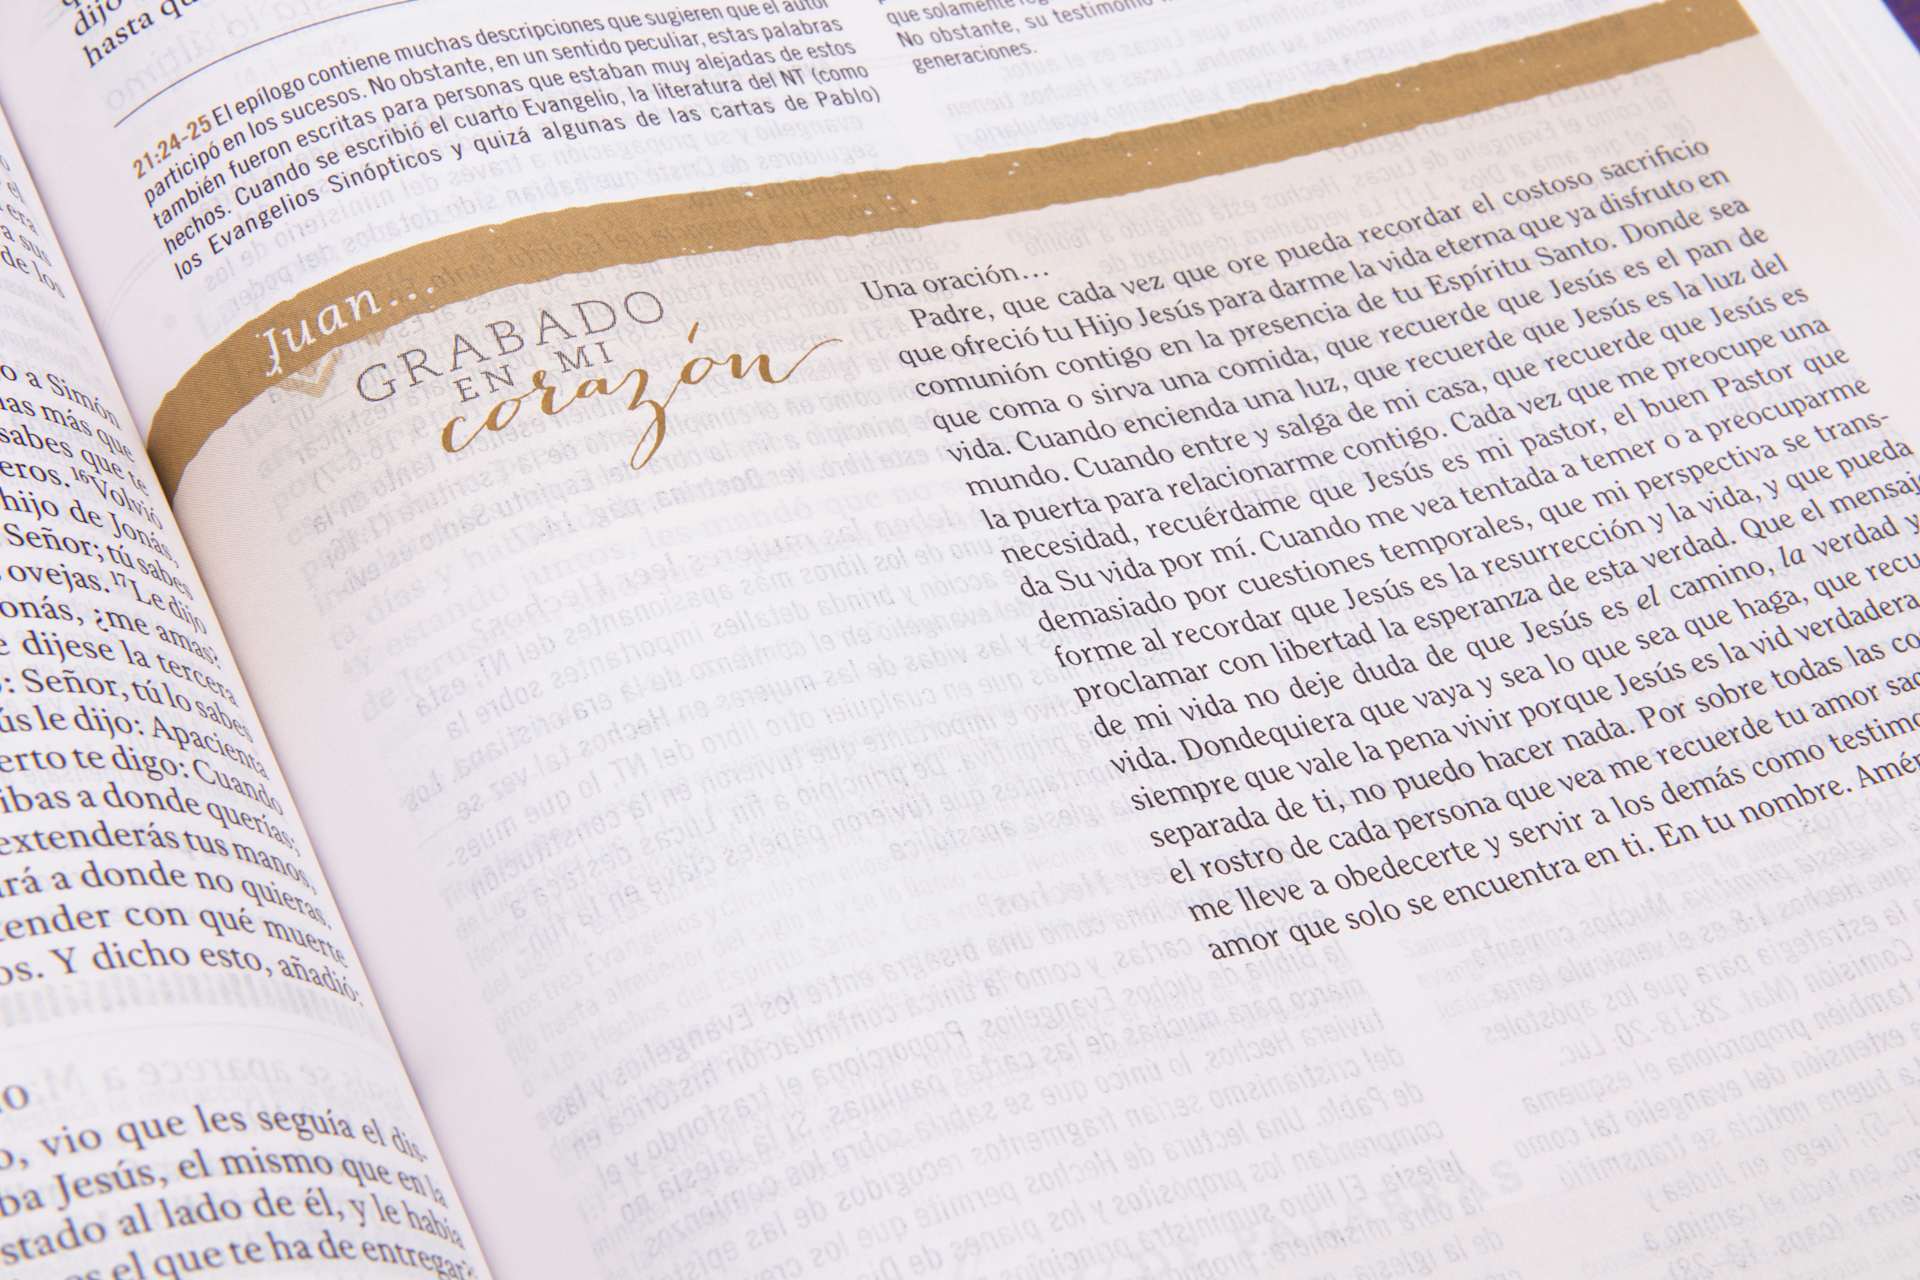 dijo
hasta qu
21:24-25 El epílogo contiene muchas descripciones que sugieren que el autor
participó en los sucesos. No obstante, en un sentido peculiar, estas palabras
también fueron escritas para personas que estaban muy alejadas de estos
hechos. Cuando se escribió el cuarto Evangelio, la literatura del NT (como
los Evangelios Sinópticos y quizá algunas de las cartas de Pablo)
que solamente
No obstante, su testimonio
generaciones.
Juan...
GRABADO
EN MI
corazón
Una oración...
Padre, que cada vez que ore pueda recordar el costoso sacrificio
que ofreció tu Hijo Jesús para darme la vida eterna que ya disfruto en
comunión contigo en la presencia de tu Espíritu Santo. Donde sea
que coma o sirva una comida, que recuerde que Jesús es el pan de
vida. Cuando encienda una luz, que recuerde que Jesús es la luz del
mundo. Cuando entre y salga de mi casa, que recuerde que Jesús es
la puerta para relacionarme contigo. Cada vez que me preocupe una
necesidad, recuérdame que Jesús es mi pastor, el buen Pastor que
da Su vida por mí. Cuando me vea tentada a temer o a preocuparme
demasiado por cuestiones temporales, que mi perspectiva se trans-
forme al recordar que Jesús es la resurrección y la vida, y que pueda
proclamar con libertad la esperanza de esta verdad. Que el mensaj
de mi vida no deje duda de que Jesús es el camino, la verdad y
vida. Dondequiera que vaya y sea lo que sea que haga, que recu
siempre que vale la pena vivir porque Jesús es la vid verdadera
separada de ti, no puedo hacer nada. Por sobre todas las co
el rostro de cada persona que vea me recuerde tu amor sac
me lleve a obedecerte y servir a los demás como testimo
amor que solo se encuentra en ti. En tu nombre. Amén
el
era
a sus
de los
o a Simón
nas más que
sabes que te
eros. 16 Volvió
hijo de Jonás,
Señor; tú sabes
ovejas. 17 Le dijo
onás, ¿me amas?
e dijese la tercera
: Señor, tú lo sabes
ús le dijo: Apacienta
erto te digo: Cuando
ibas a donde querías;
extenderás tus manos,
rá a donde no quieras.
tender con qué muerte
os. Y dicho esto, añadió:
o, vio que les seguía el dis-
ba Jesús, el mismo que en la
stado al lado de él, y le había
es el que te ha de entregar?